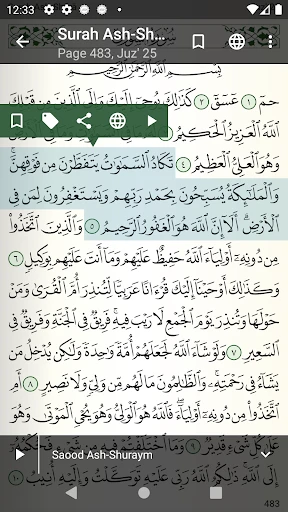 12:33
Surah Ash-Sh...
Page 483, Juz' 25
بِسْمِ اللَّهِ الرَّحْمَٰنِ الرَّحِيمِ
حمٓ ١ عٓسٓقٓ ٢ كَذَٰلِكَ يُوحِيٓ إِلَيْكَ وَإِلَى الَّذِينَ مِن قَبْلِكَ
اللَّهُ الْعَزِيزُ الْحَكِيمُ
وَهُوَ الْعَلِيُّ الْعَظِيمُ ٤ تَكَادُ السَّمَٰوَٰتُ يَتَفَطَّرْنَ مِن فَوْقِهِنَّ ۚ
وَالْمَلَٰٓئِكَةُ يُسَبِّحُونَ بِحَمْدِ رَبِّهِمْ وَيَسْتَغْفِرُونَ لِمَن فِي
الْأَرْضِ ۗ أَلَآ إِنَّ اللَّهَ هُوَ الْغَفُورُ الرَّحِيمُ ٥ وَالَّذِينَ اتَّخَذُوا
مِن دُونِهِٓ أَوْلِيَآءَ اللَّهُ حَفِيظٌ عَلَيْهِمْ وَمَآ أَنتَ عَلَيْهِم بِوَكِيلٍ ٦
وَكَذَٰلِكَ أَوْحَيْنَآ إِلَيْكَ قُرْءَانًا عَرَبِيًّا لِّتُنذِرَ أُمَّ الْقُرَىٰ وَمَنْ
حَوْلَهَا وَتُنذِرَ يَوْمَ الْجَمْعِ لَا رَيْبَ فِيهِ ۚ فَرِيقٌ فِي الْجَنَّةِ وَفَرِيقٌ فِي
السَّعِيرِ ٧ وَلَوْ شَآءَ اللَّهُ لَجَعَلَهُمْ أُمَّةً وَٰحِدَةً وَلَٰكِن يُدْخِلُ مَن
يَشَآءُ فِي رَحْمَتِهِ ۚ وَالظَّٰلِمُونَ مَا لَهُم مِّن وَلِيٍّ وَلَا نَصِيرٍ ٨ أَمِ
اتَّخَذُوا مِن دُونِهِٓ أَوْلِيَآءَ ۖ فَاللَّهُ هُوَ الْوَلِيُّ وَهُوَ يُحْيِ الْمَوْتَىٰ وَهُوَ
عَلَىٰ كُلِّ شَيْءٍ قَدِيرٌ ٩ وَمَا اخْتَلَفْتُمْ فِيهِ مِن شَيْءٍ فَحُكْمُهُٓ
Saood Ash-Shuraym
إِلَى اللَّهِ ۚ ذَٰلِكُمُ اللَّهُ رَبِّي عَلَيْهِ تَوَكَّلْتُ وَإِلَيْهِ أُنِيبُ ١٠
483